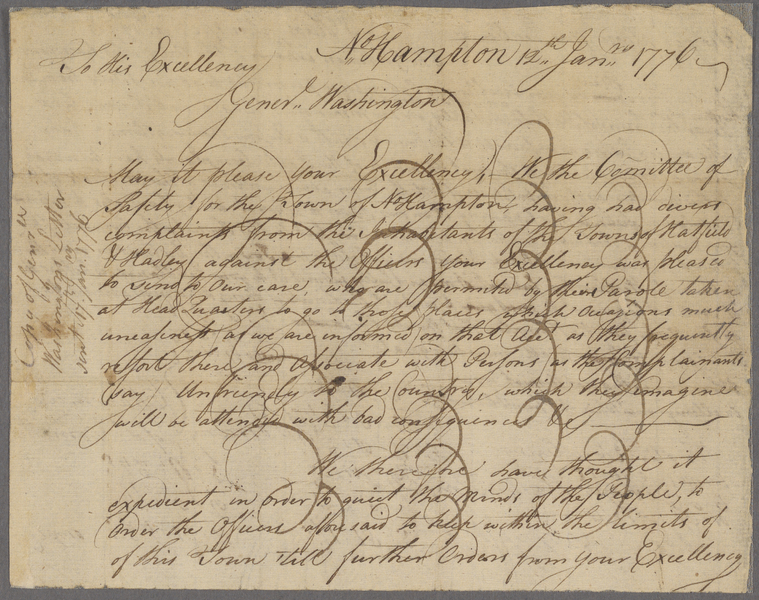 No. Hampton 12th. Janry. 1776
To His Excellency
Generl. Washington
May it please your Excellency, We the Comittee of
Safety for the Town of No. Hampton, having had divers
complaints from the Inhabitants of the Towns of Hatfield
& Hadley against the Officers your Excellency was pleased
to send to our care, who are permitted by their Parole taken
at Head Quarters to go to those places which Occasions much
uneasiness as we are informed on that Acct. as they frequently
resort there and associate with Persons, as the Complainants
say, Unfriendly to the Country, which they imagene
will be attended with bad consequences &c
We therefore have thought it
expedient in order to quiet the minds of the People, to
Order the Officers aforesaid to keep within the limits of
of this Town till further Orders from your Excellency
Copy of Gener
Washingtons Letter
Jan. 1776